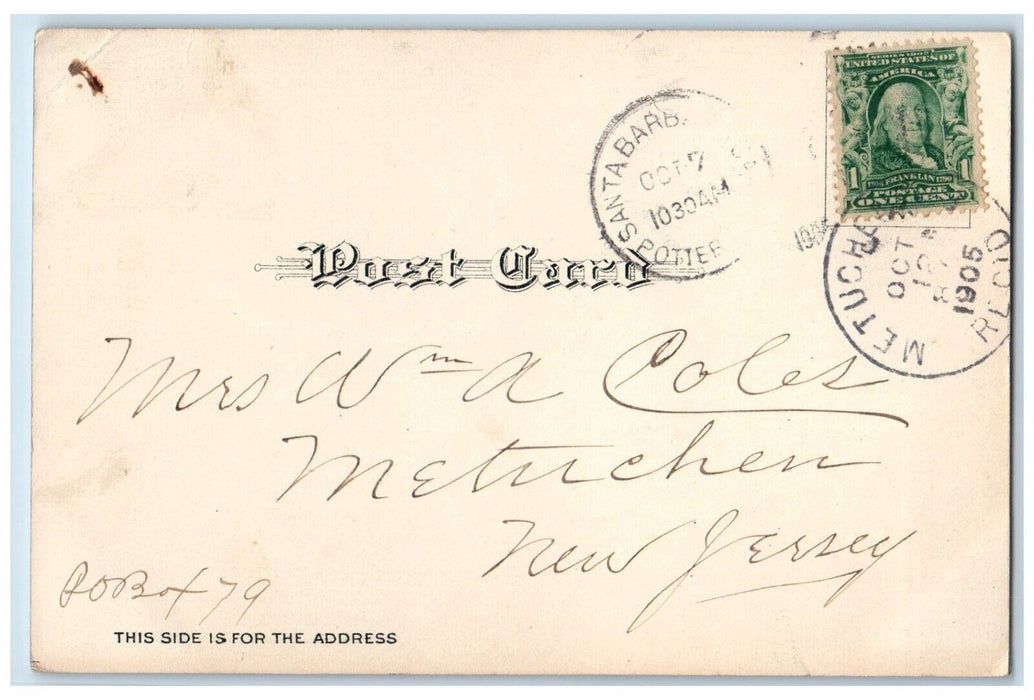 SERIES 1902
UNITED STATES OF
AMERICA
1706 FRANKLIN 1790
1 POSTAGE 1
ONE CENT
SANTA BARB
OCT 7
1030AM
POTTER
1905
METUCHE
OCT
12
1905
REC'D
Post Card
Mrs Wm A Coles
Metuchen
New Jersey
P O Box 79
THIS SIDE IS FOR THE ADDRESS